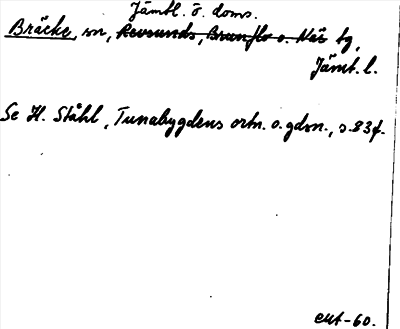 Jämtl. ö. doms.
Bräcke, sn, Revsunds, Brunflo o. Näs tg,
Jämt. l.
Se H. Ståhl, Tunabygdens ortn. o. gdsn., s. 83f.
-60.